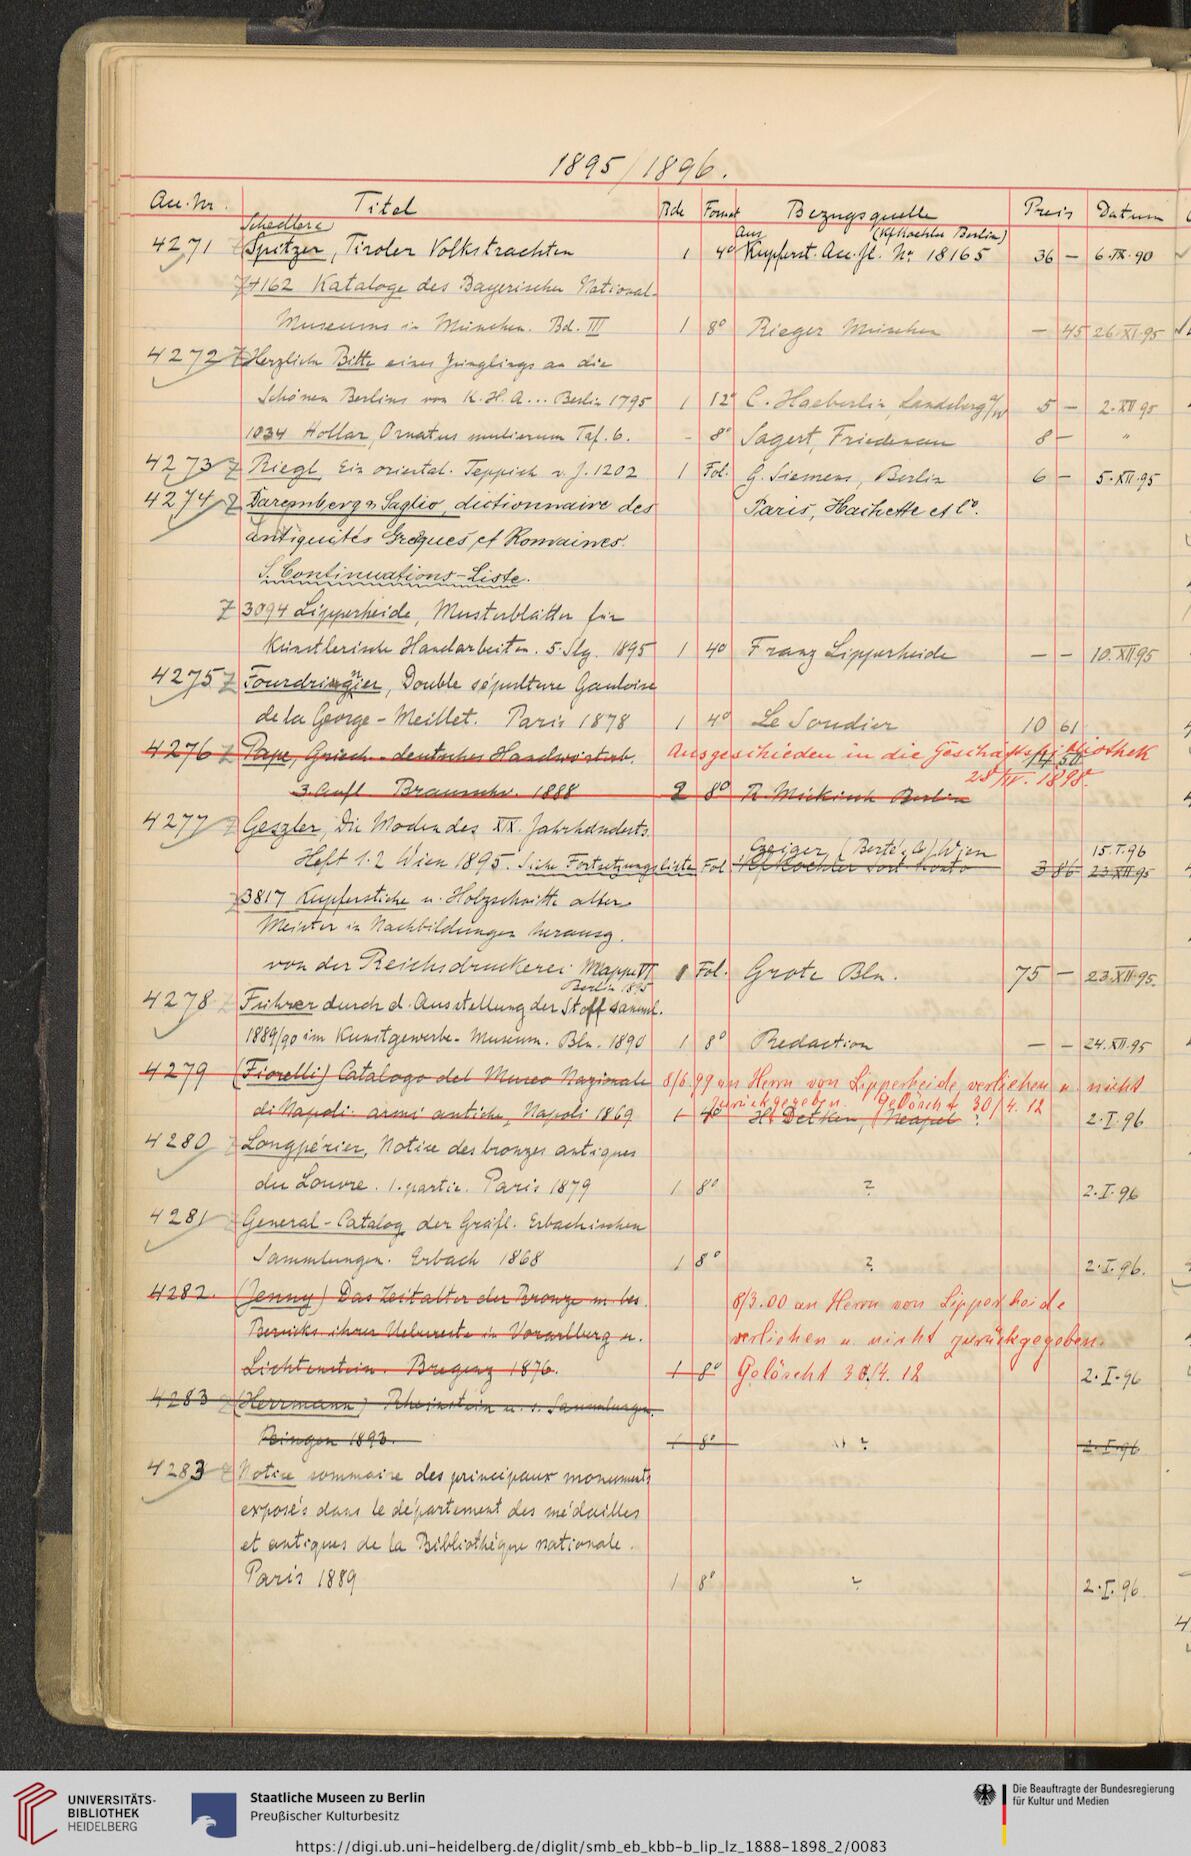 1895/1896.
Acc. Nr. Titel Bde Format Bezugsquelle Preis Datum
Schedlers Aus (Kf Koehler Berlin)
4271 Spitzer, Tiroler Volkstrachten 1 4° Kupferst. Acc. Jl. Nr. 18165 36 — 6.IX.90
4162 Kataloge des Bayerischen National-
Museums in München. Bd. III 1 8° Rieger München — 45 26.XI.95
4272 Herzliche Bitte eines Jünglings an die
Schönen Berlins von K. H. A... Berlin 1795 1 12° C. Haeberlin, Landsberg a/W 5 — 2.XII.95
1034 Hollar, Ornatus mulierum Taf. 6. - 8° Sagert, Friedenau 8 — "
4273 Riegl, Ein oriental. Teppich v. J. 1202 1 Fol. G. Siemens, Berlin 6 — 5.XII.95
4274 Daremberg & Saglio, dictionnaire des Paris, Hachette et Co.
antiquités Grecques et Romaines.
S. Continuations-Liste.
3094 Lipperheide, Musterblätter für
Künstlerische Handarbeiten. 5. Slg. 1895 1 4° Franz Lipperheide — — 10.XII.95
4275 Fourdrignier, Double sépulture Gauloise
de la Gorge-Meillet. Paris 1878 1 4° Le Soudier 10 61
4276 Pape, Griech.-deutsches Handwörterb. Ausgeschieden in die Geschäftsbibliothek 14 50
28/IV. 1898.
3. Aufl. Braunschw. 1888 2 8° R. Mickisch Berlin
4277 Geszler, Die Moden des XIX. Jahrhunderts.
Geiger, (Berté & Co) Wien 15.I.96
Heft 1.2 Wien 1895. Siehe Fortsetzungsliste Fol Kf Koehler Sort Konto 3 86 23.XII.95
3817 Kupferstiche u. Holzschnitte alter
Meister in Nachbildungen herausg.
von der Reichsdruckerei. Mappe VI 1 Fol. Grote Bln. 75 — 23.XII.95.
Berlin 1895
4278 Führer durch d. Ausstellung der Stoffsamml.
1889/90 im Kunstgewerbe-Museum. Bln. 1890 1 8° Redaction — — 24.XII.95
4279 (Fiorelli) Catalogo del Museo Nazionale 8/6.99 an Herrn von Lipperheide verliehen u. nicht
zurückgegeben. Gelöscht 30/4.12
di Napoli. armi antiche, Napoli 1869 1 4° H. Detken, (Neapel ? 2.I.96
4280 Longpérier, Notice des bronzes antiques
du Louvre. 1. partie. Paris 1879 1 8° ? 2.I.96
4281 General-Catalog der Gräfl. Erbachischen
Sammlungen. Erbach 1868 1 8° ? 2.I.96.
4282. (Jenny) Das Zeitalter der Bronze m. bes. 8/3.00 an Herrn von Lipperheide
Berücks. ihrer Ueberreste in Vorarlberg u. verliehen u. nicht zurückgegeben.
Lichtenstein. Bregenz 1876. 1 8° Gelöscht 30/4.12 2.I.96
4283 (Herrmann) Rheinstein u. s. Sammlungen.
Bingen 1893. 1 8° ? 2.I.96
4283 Notice sommaire des principaux monuments
exposés dans le département des médailles
et antiques de la Bibliothèque nationale.
Paris 1889 1 8° ? 2.I.96
UNIVERSITÄTS-
BIBLIOTHEK
HEIDELBERG
Staatliche Museen zu Berlin
Preußischer Kulturbesitz
Die Beauftragte der Bundesregierung
für Kultur und Medien
https://digi.ub.uni-heidelberg.de/diglit/smb_eb_kbb-b_lip_lz_1888-1898_2/0083